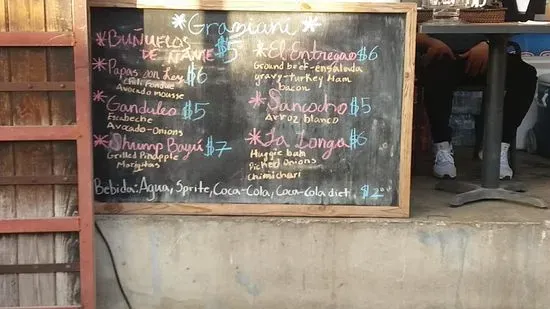 * Graziani *
* Buñuelos $5
DE ÑAME
* Papas don Rey $6
Chili Fondue
Avocado mousse
* Gandules $5
Escabeche
Avocado-Onions
* Shrump Bayú $7
Grilled Pineapple
Mariquitas
* El Entregao $6
Ground beef-ensalada
gravy-turkey Ham
bacon
* Sancocho $5
Arroz blanco
* La Longa $6
Huggie bam
Picked Onions
Chimichuri
Bebida: Agua, Sprite, Coca-Cola, Coca-Cola diet, $2.00